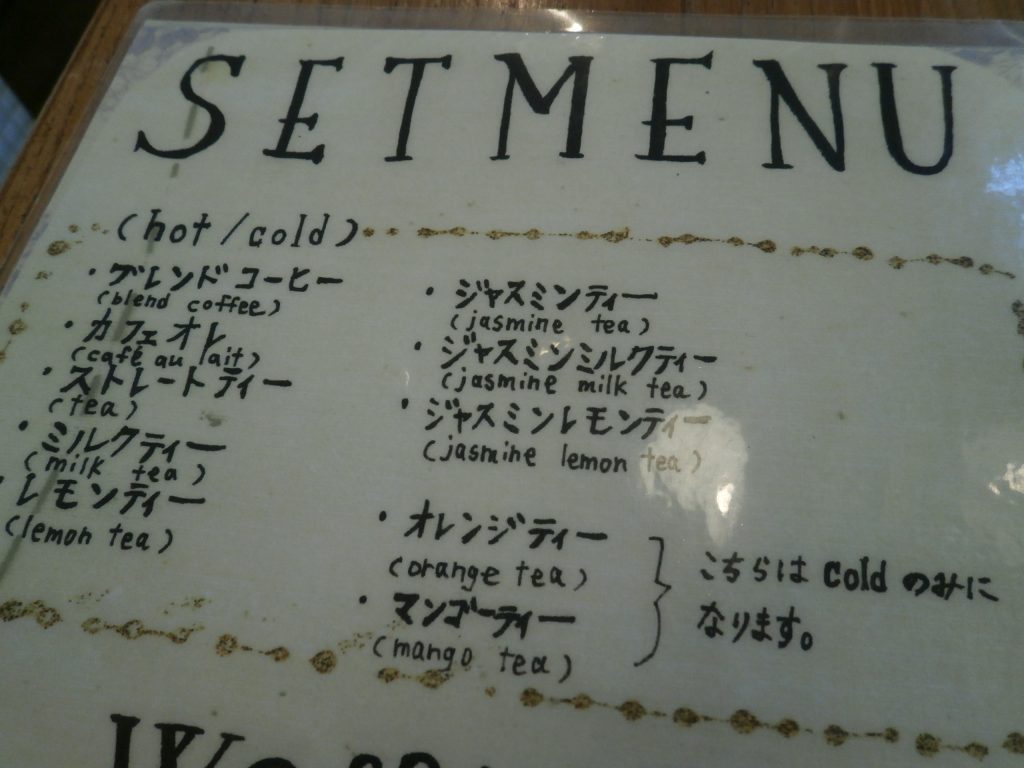 SET MENU
(hot/cold)
・ブレンドコーヒー
(blend coffee)
・カフェオレ
(café au lait)
・ストレートティー
(tea)
・ミルクティー
(milk tea)
・レモンティー
(lemon tea)
・ジャスミンティー
(jasmine tea)
・ジャスミンミルクティー
(jasmine milk tea)
・ジャスミンレモンティー
(jasmine lemon tea)
・オレンジティー
(orange tea)
・マンゴーティー
(mango tea)
こちらは cold のみに
なります。